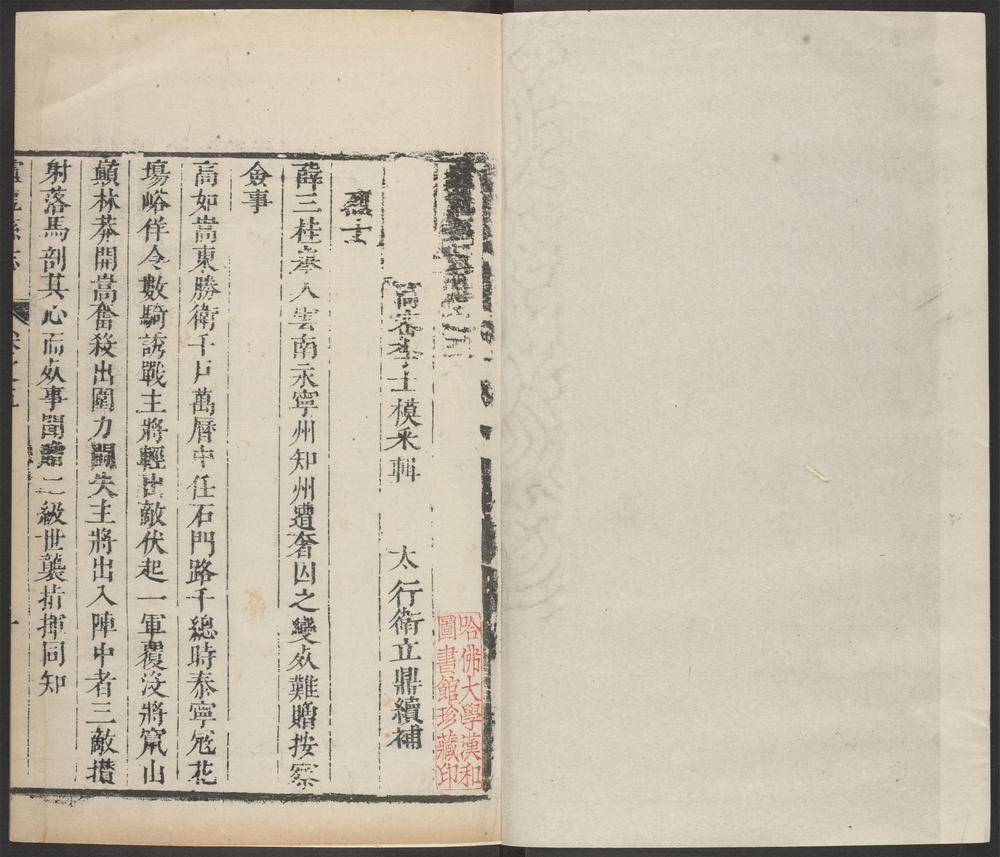 高密李士模采輯 太行衛立鼎續補
烈士
薛三桂舉人雲南永寧州知州遭奢囚之變死難贈按察
僉事
高如嵩東勝衛千戶萬曆中任石門路千總時泰寧寇花
塲峪佯令數騎誘戰主將輕出敵伏起一軍覆沒將竄山
巔林莽開嵩奮殺出圍力鬬失主將出入陣中者三敵攢
射落馬剖其心而死事聞贈二級世襲指揮同知
盧龍縣志 卷之五
哈佛大學漢和
圖書館珍藏印